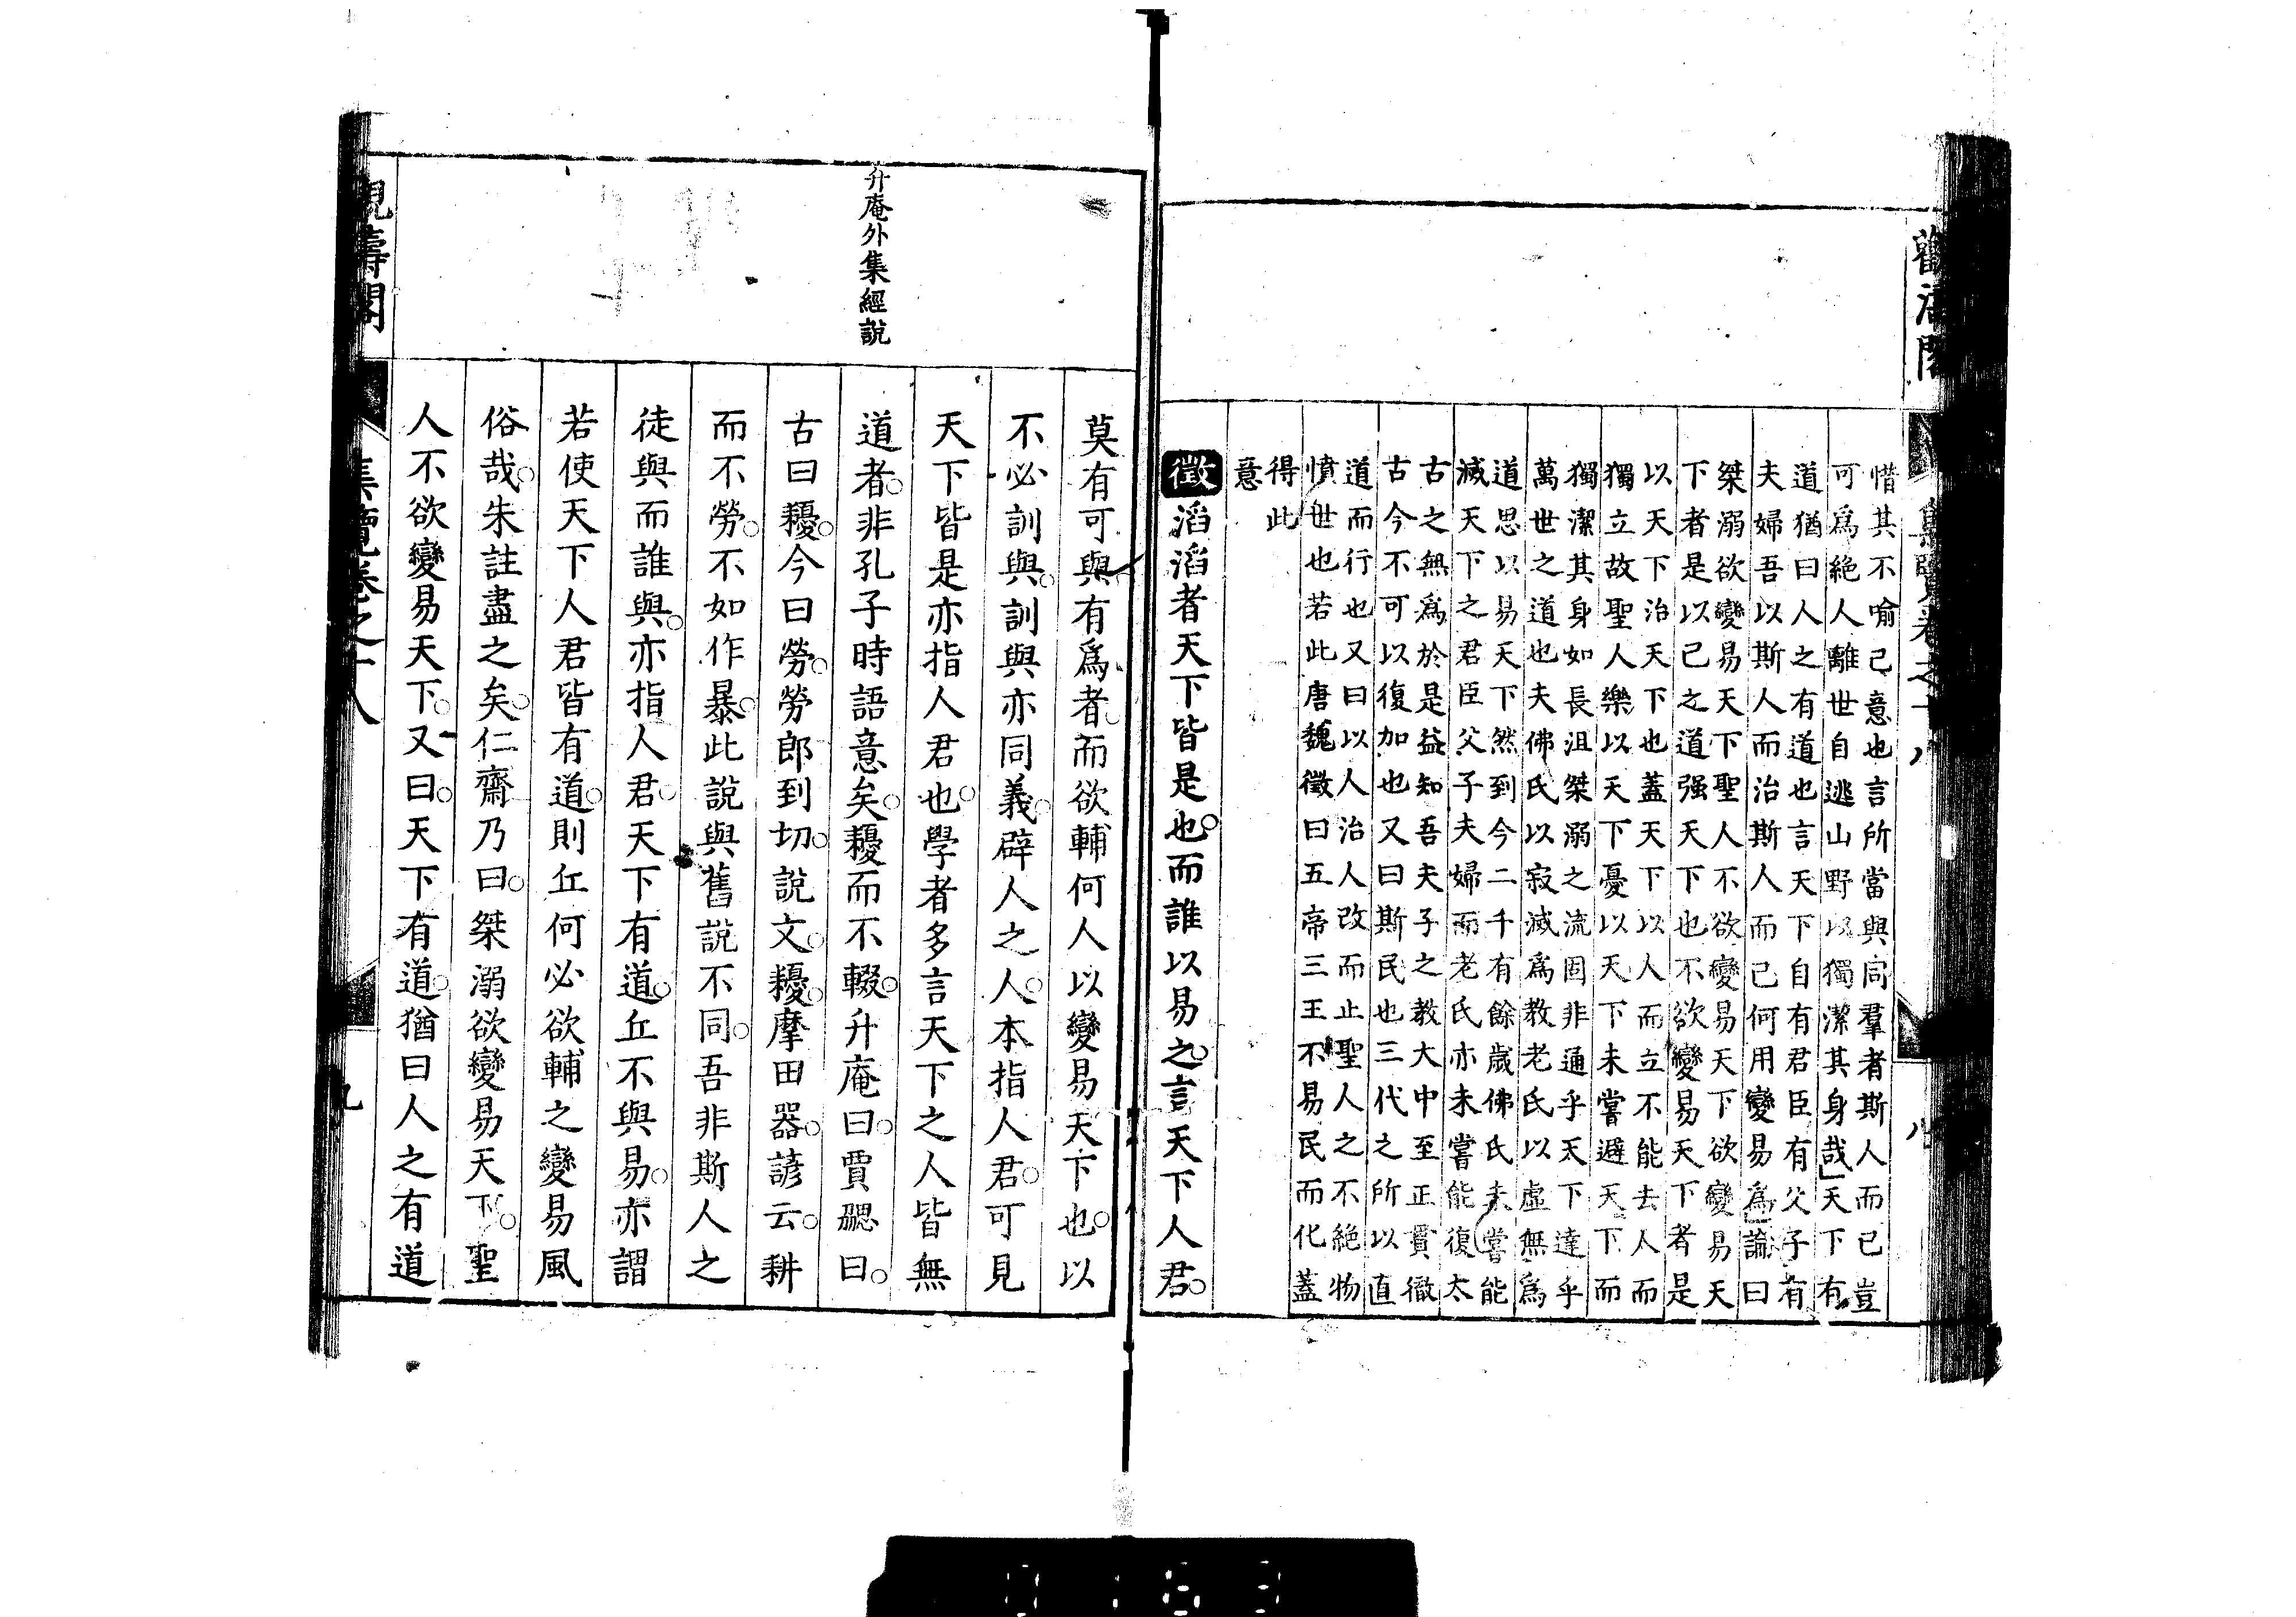 觀濤閣
集覽卷之十八
八
惜其不喻己意也言所當與同羣者斯人而已豈
可爲絶人離世自逃山野以獨潔其身哉」天下有
道猶曰人之有道也言天下自有君臣有父子有
夫婦吾以斯人而治斯人而已何用變易爲」論曰
桀溺欲變易天下聖人不欲變易天下欲變易天
下者是以己之道强天下也不欲變易天下者是
以天下治天下也蓋天下以人而立不能去人而
獨立故聖人樂以天下憂以天下未嘗避天下而
獨潔其身如長沮桀溺之流固非通乎天下達乎
萬世之道也夫佛氏以寂滅爲教老氏以虛無爲
道思以易天下然到今二千有餘歲佛氏未嘗能
滅天下之君臣父子夫婦而老氏亦未嘗能復太
古之無爲於是益知吾夫子之教大中至正貫徹
古今不可以復加也又曰斯民也三代之所以直
道而行也又曰以人治人改而止聖人之不絶物
憤世也若此唐魏徵曰五帝三王不易民而化蓋
得此
意
徵滔滔者天下皆是也。而誰以易之。言天下人君。
莫有可與。有爲者。而欲輔何人以變易天下也。以
不必訓與。訓與亦同義。辟人之人。人本指人君。可見
天下皆是亦指人君也。學者多言天下之人皆無
道者。非孔子時語意矣。耰而不輟。升庵曰。賈勰曰。
升庵外集經說
古曰耰。今曰勞。勞郎到切。說文。耰。摩田器。諺云。耕
而不勞。不如作暴。此說與舊說不同。吾非斯人之
徒與而誰與。亦指人君。天下有道。丘不與易。亦謂
若使天下人君皆有道。則丘何必欲輔之變易風
俗哉。朱註盡之矣。仁齋乃曰。桀溺欲變易天下。聖
人不欲變易天下。又曰。天下有道。猶曰人之有道
觀濤閣
集覽卷之十八
九